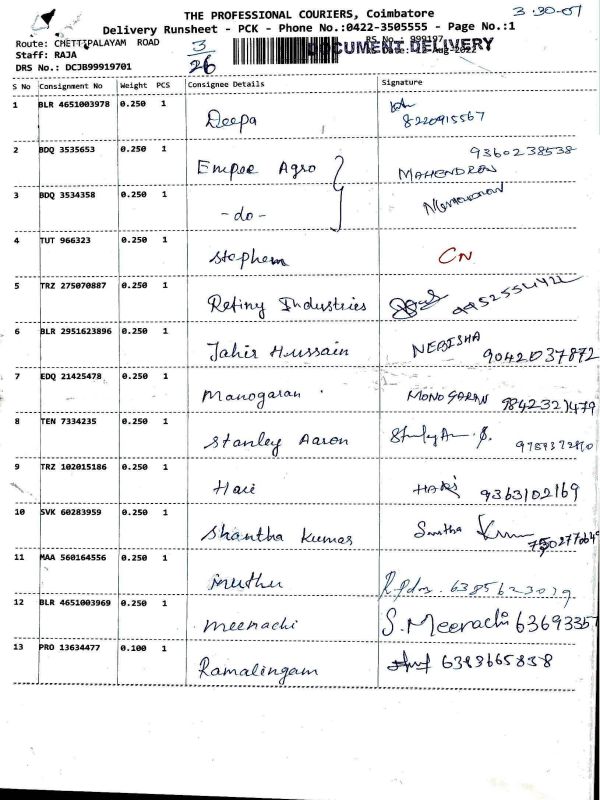 3-30-01
THE PROFESSIONAL COURIERS, Coimbatore
Delivery Runsheet - PCK - Phone No.:0422-3505555 - Page No.:1
Route: CHETTIPALAYAM ROAD
3/26
RS No.: 999197
DOCUMENT DELIVERY
Staff: RAJA
RS Date: 12-Aug-2022
DRS No.: DCJB99919701
S No Consignment No Weight PCS Consignee Details Signature
1 BLR 4651003978 0.250 1 Deepa 8220915567
2 BDQ 3535653 0.250 1 Empee Agro MAHENDRAN 9360238538
3 BDQ 3534358 0.250 1 -do-
4 TUT 966323 0.250 1 Stephen CN
5 TRZ 275070887 0.250 1 Retiny Industries
6 BLR 2951623896 0.250 1 Jahir Hussain NEBISHA 9042037872
7 EDQ 21425478 0.250 1 Manogaran MONOGARAN 9842321479
8 TEN 7334235 0.250 1 Stanley Aaron
9 TRZ 102015186 0.250 1 Hari HARI 9363102169
10 SVK 60283959 0.250 1 Shantha Kumar
11 MAA 560164556 0.250 1 Muthu 6385623029
12 BLR 4651003969 0.250 1 Meenachi S.Meenachi 6369335
13 PRO 13634477 0.100 1 Ramalingam 6383665838